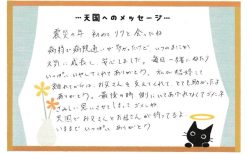 …天国へのメッセージ…
震災の年 初めてリクと会ったね
病持で病院通いが多かったけど いつのまにか
大きく成長し、安心しました。毎日一緒に
いっぱいいやしてくれてありがとう。
離れてからは、お父さんを支えてくれてとても助かったよ
ありがとう。最後の時 側にいてあげれなくてごめんネ
さみしい思いさせてしまってごめんね
天国でお父さんとお母さんが待ってるよ
いままでいっぱいありがとう